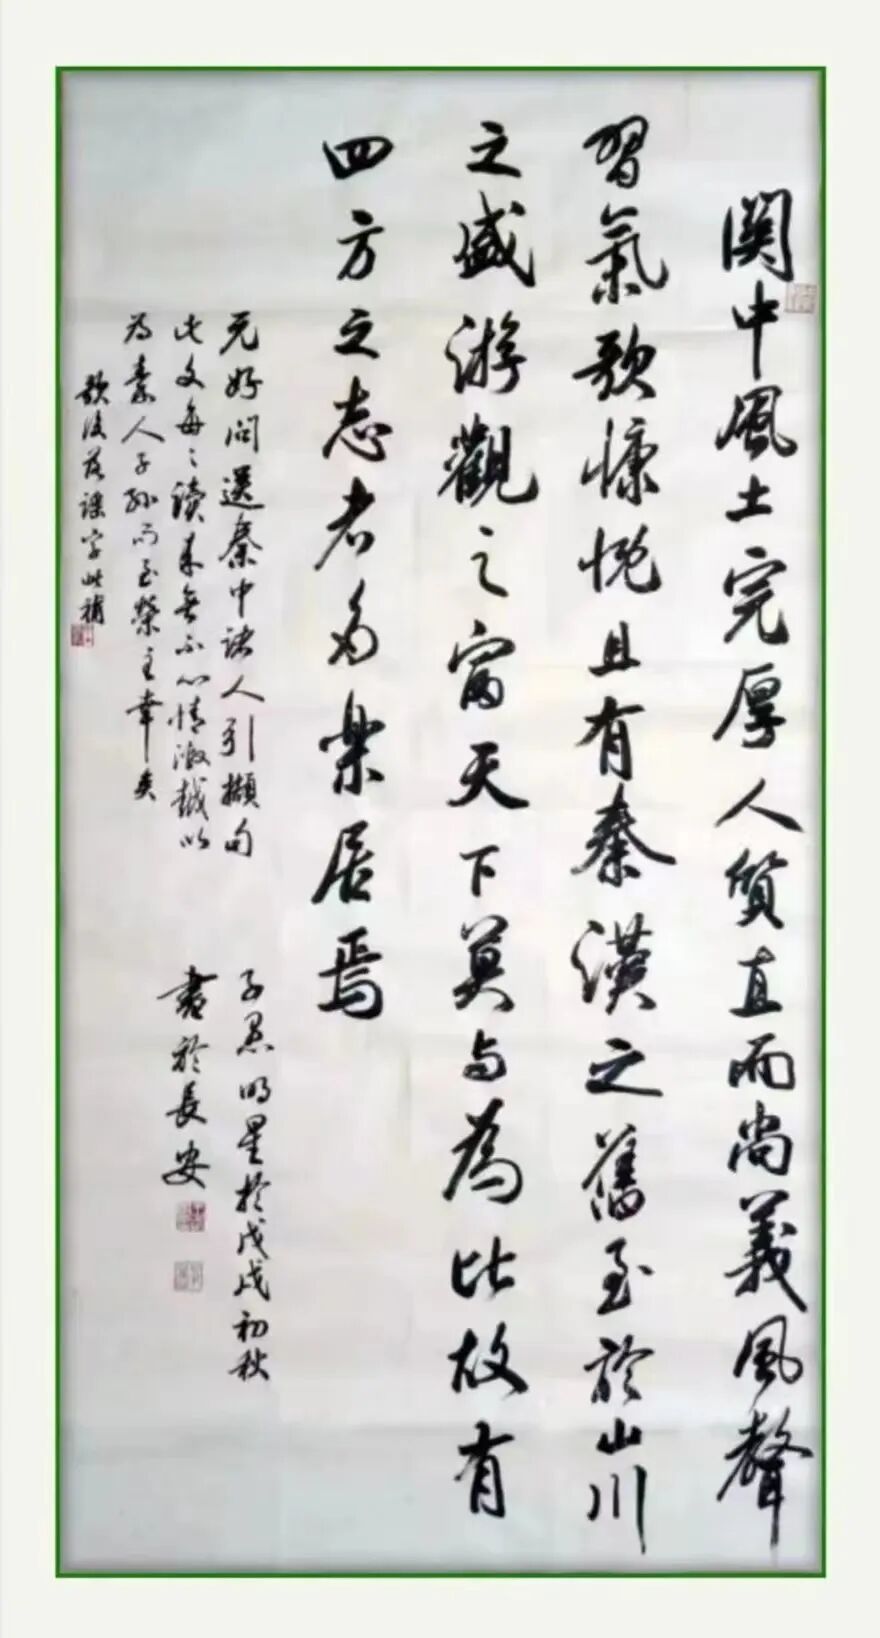 關中風土完厚人質直而尚義風聲
習氣歌慷慨且有秦漢之舊至於山川
之盛游觀之富天下莫与為比故有
四方之志者多樂居焉
元好问送秦中诸人引撷句
此文每々读来无不心情激越以
为秦人子孙而至荣至幸矣
歌後落謠字此補
子愚明星於戊戌初秋
書於長安